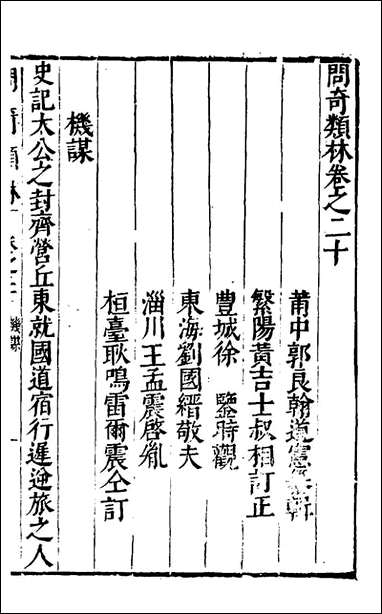 問奇類林卷之二十
莆中郭良翰道憲
繁陽黃吉士叔相訂正
豐城徐 鑒時觀
東海劉國縉敬夫
淄川王孟震啓胤
桓臺耿鳴雷爾震仝訂
機謀
史記太公之封齊營丘東就國道宿行遲逆旅之人
問奇類林 卷之二十 機謀 一